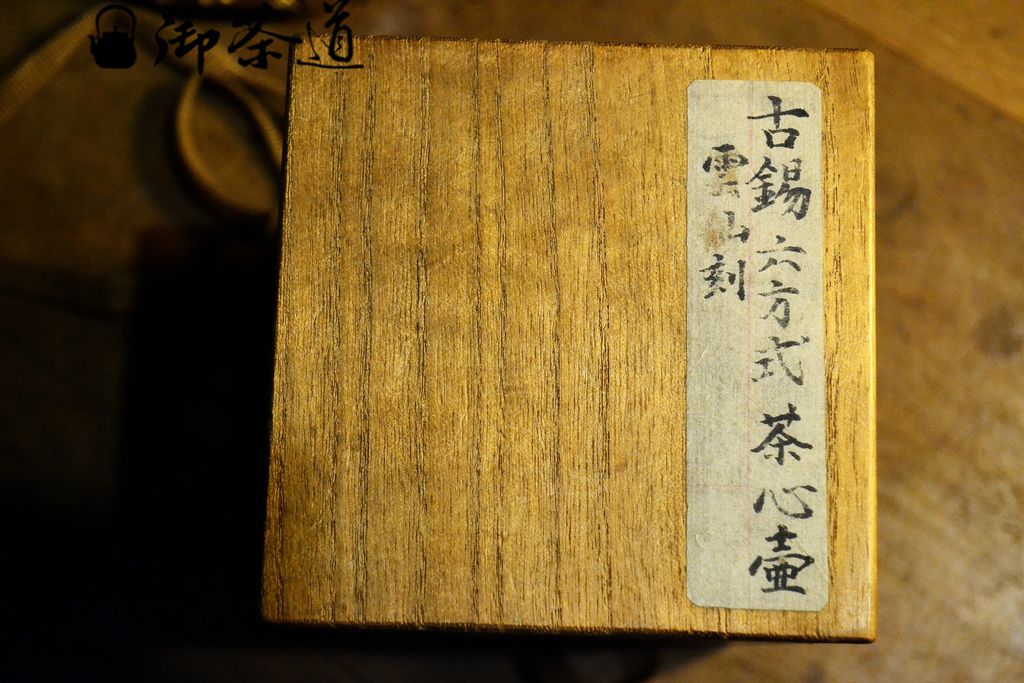 御茶道
古錫六方式茶心壷
雲山刻